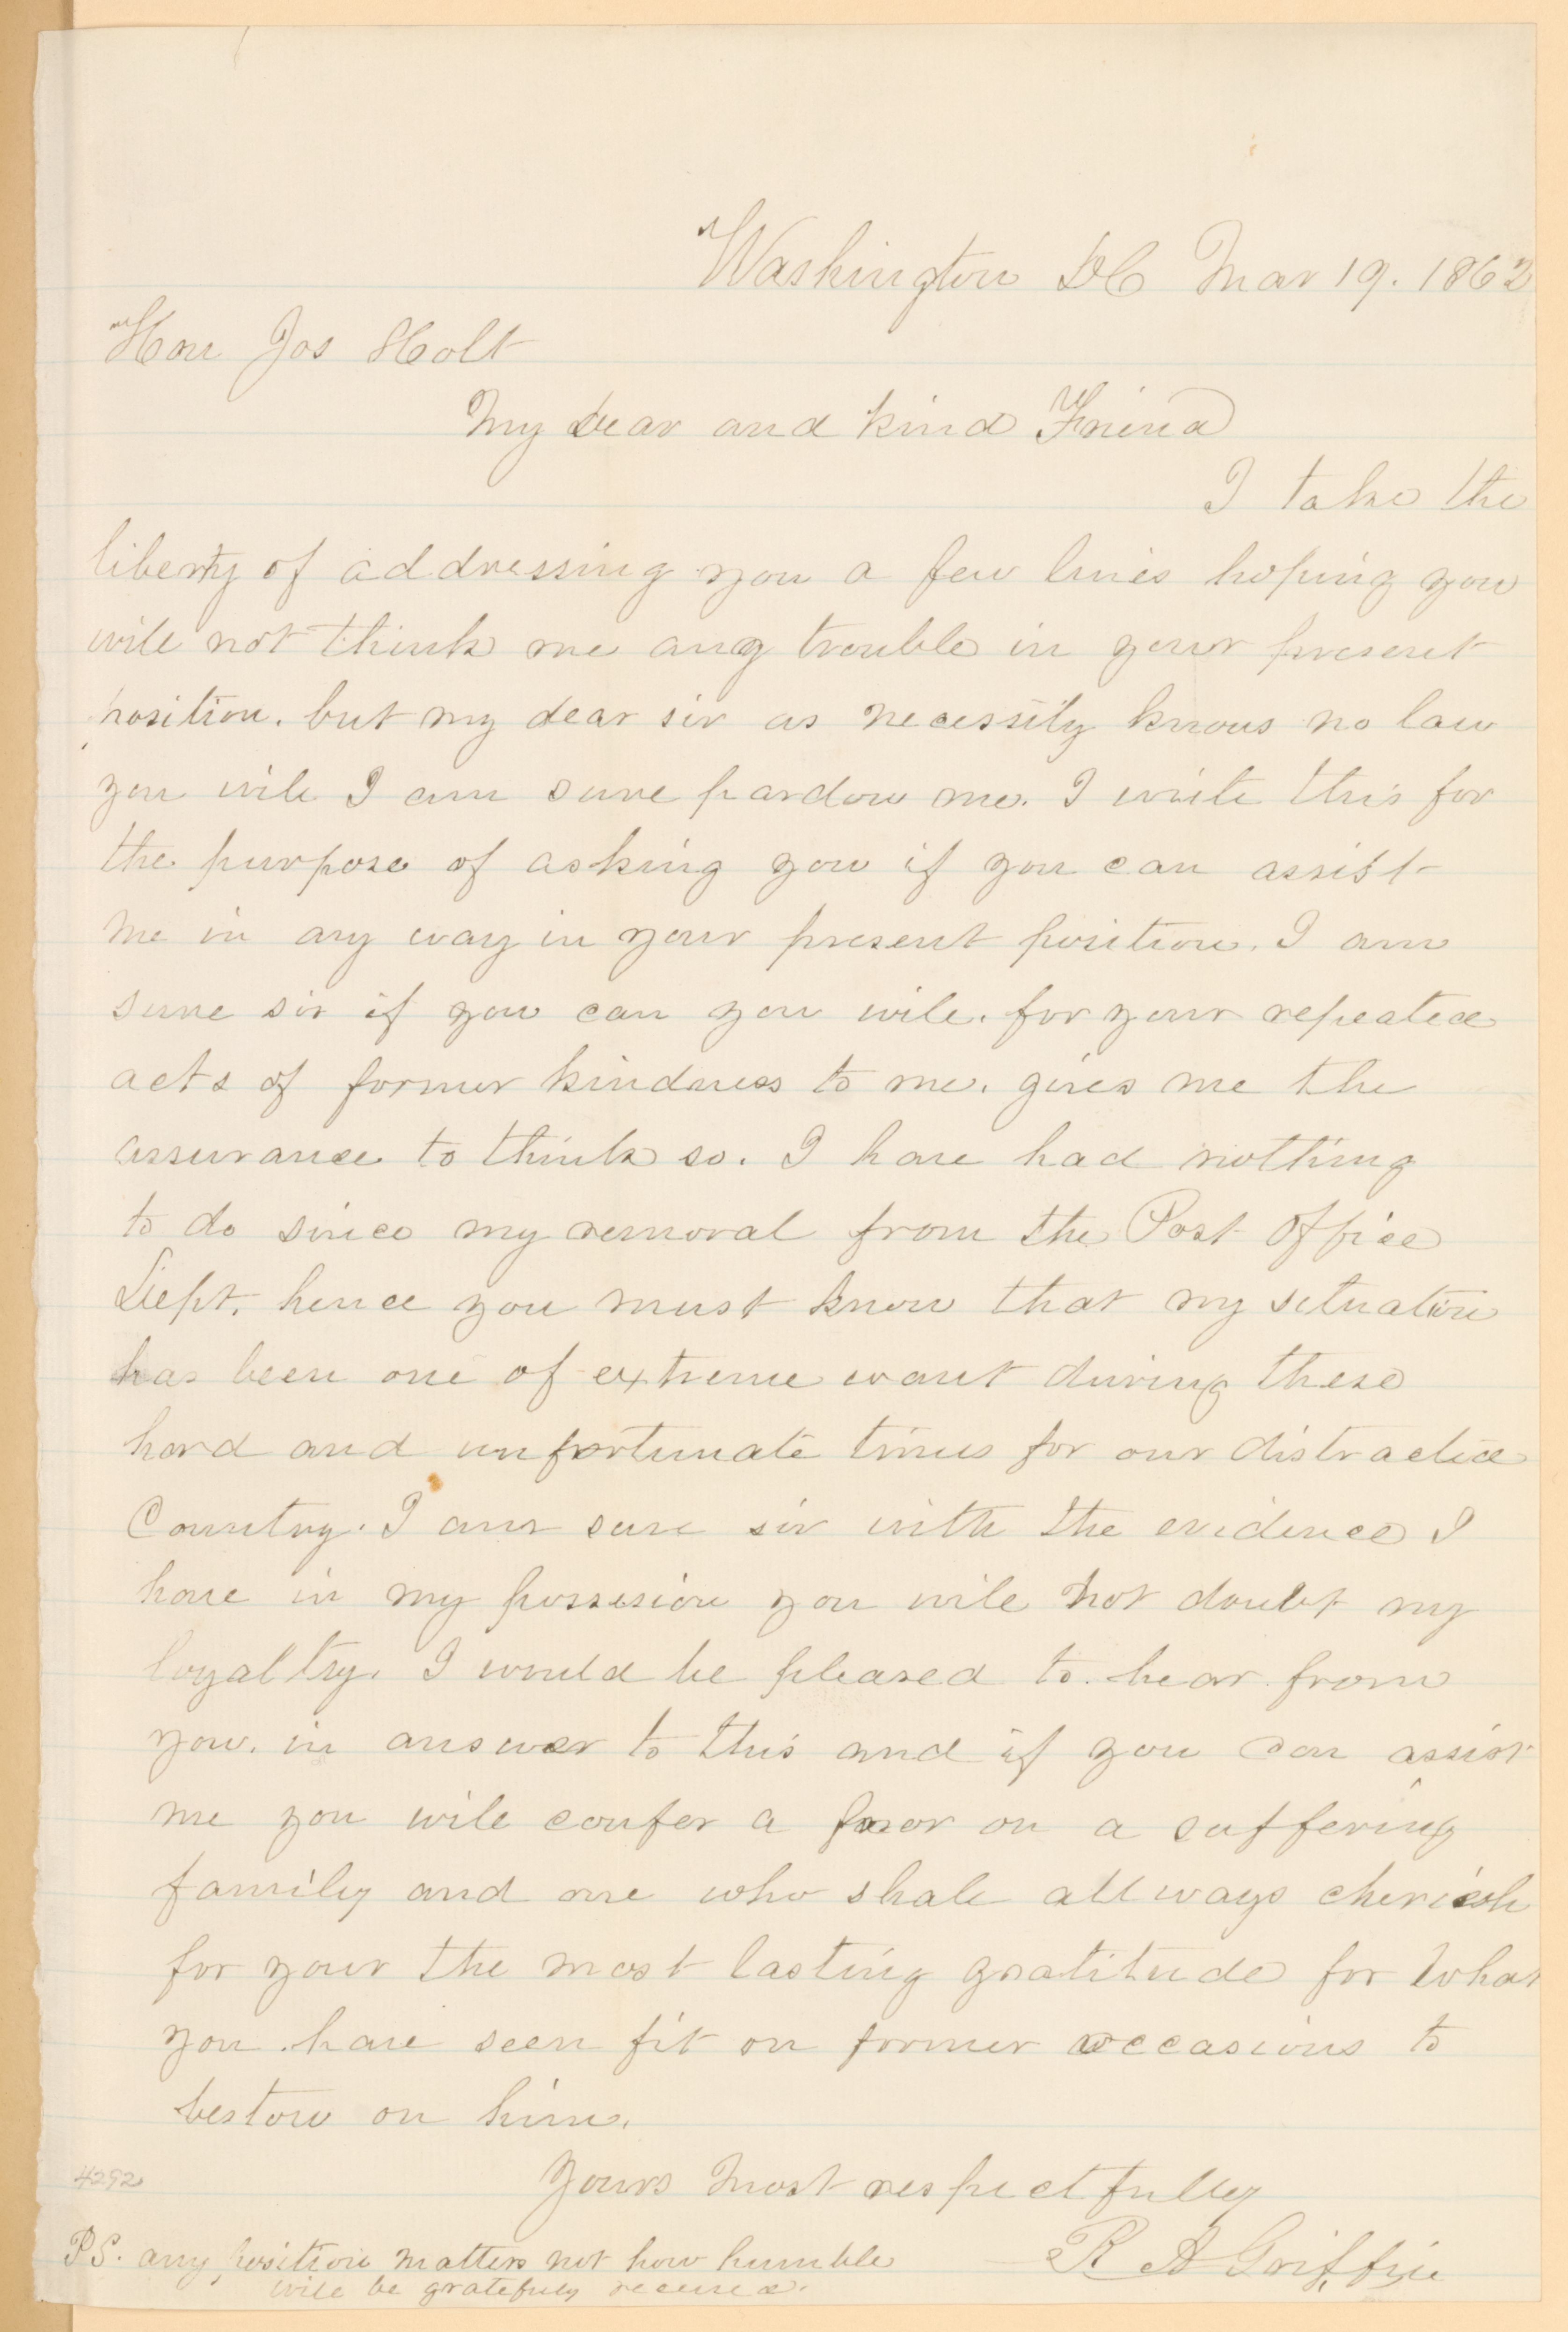 Washington DC Mar 19. 1862
Hon Jos Holt
My dear and kind Friend
I take the
liberty of addressing you a few lines hoping you
will not think me any trouble in your present
position. but my dear sir as necessity knows no law
you will I am sure pardon me. I write this for
the purpose of asking you if you can assist
me in any way in your present position. I am
sure sir if you can you will. for your repeated
acts of former kindness to me. gives me the
assurance to think so. I have had nothing
to do since my removal from the Post Office
Dept. hence you must know that my situation
has been one of extreme want during these
hard and unfortunate times for our distracted
Country. I am sure sir with the evidence I
have in my possesion you will not doubt my
loyalty. I would be pleased to hear from
you. in answer to this and if you can assist
me you will confer a favor on a suffering
family and one who shall allways cherish
for your the most lasting gratitude for what
you have seen fit on former occasions to
bestow on him.
Yours most respectfully
R A Griffin
4292
PS. any position matters not how humble
will be gratefuly received.